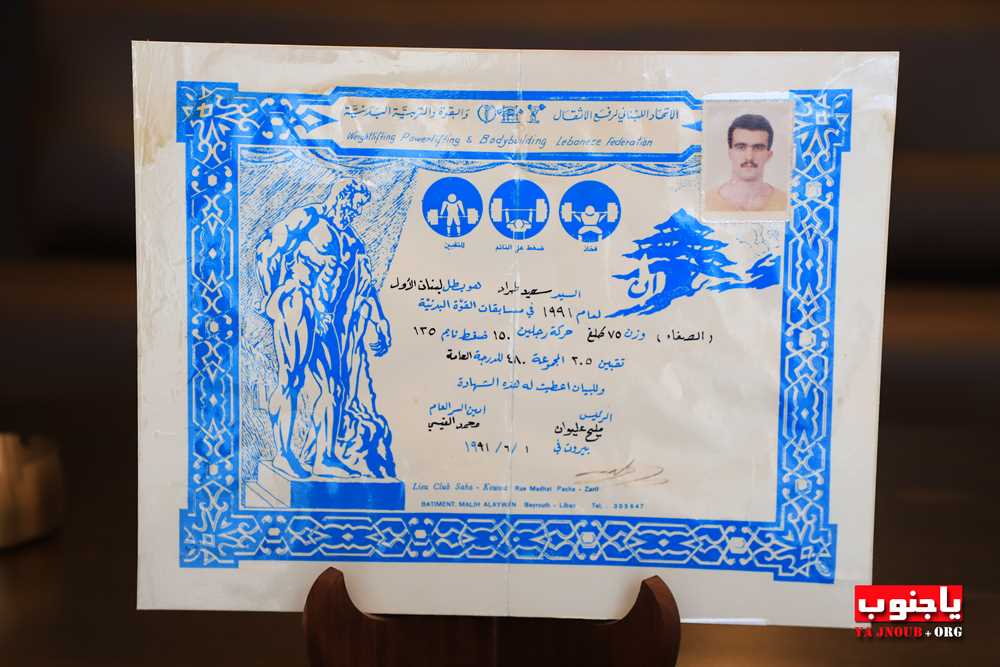 الاتحاد اللبناني لرفع الاثقال والقوة والتربية البدنية
Weightlifting Powerlifting & Bodybuilding Lebaneze Federation
فخاذ
ضغط على النائم
للتقبين
السيد سعيد طراد هو بطل لبنان الأول
لعام ١٩٩١ في مسابقات القوة البدنية
( الصفاء ) وزن ٧٥ كلغ حركة رجلين ١٥٠ ضغط نايم ١٣٥
تقبين ٢٠٥ المجموعة ٤٨٠ للدرجة العامة
وللبيان اعطيت له هذه الشهادة
الرئيس
مليح عليوان
امين السر العام
محمد القيسي
بيروت في ١ / ٦ / ١٩٩١
Lieu Club Saha - Kouwa Rue Madhat Pacha - Zarif
BATIMENT. MALIH ALAYWAN Beyrouth - Liban Tel. 303647
ياجنوب
YA JNOUB + ORG